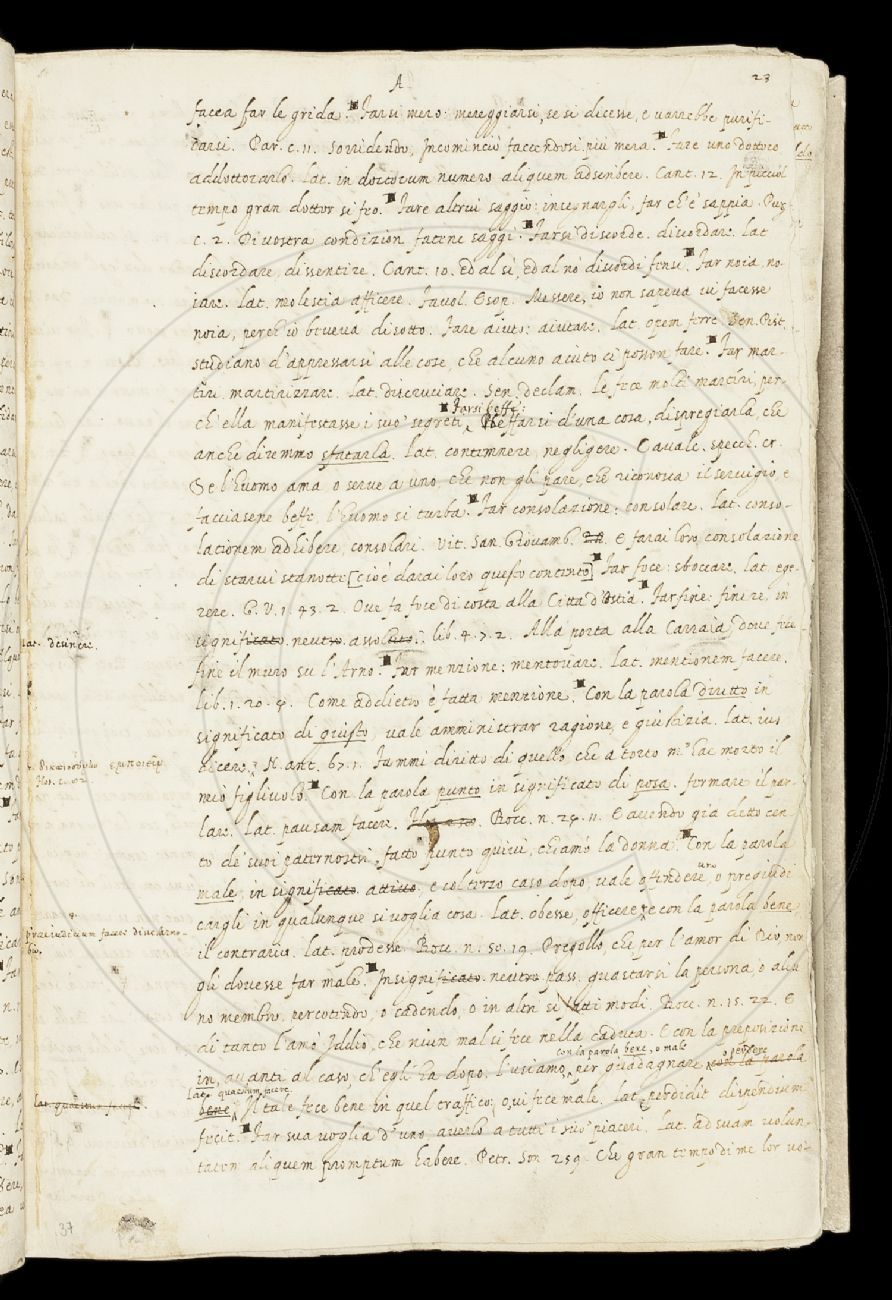 A
23
facea far le grida. Farsi mero: mereggiarsi, se si dicesse, e varrebbe purifi-
carsi. Par. c. 11. Sorridendo, Incominciò faccendosi più mera. Fare uno dottore
addottorarlo. Lat. in doctorum numero aliquem adscribere. Cant. 12. In picciol
tempo gran dottor si feo. Fare altrui saggio: insegnargli, far ch'e' sappia. Purg.
c. 2. Di vostra condizion fatene saggi. Farsi discorde. discordare. Lat.
discordare, dissentire. Cant. 10. Ed al sì, ed al nò discordi fensi. Far noia. no-
iare. Lat. molestia afficere. Favol. Esop. Messere, io non sapeva vi facesse
noia, perch'io beveva disotto. Fare aiuto: aiutare. Lat. opem ferre. Sen. Pist.
studiano d'appressarsi alle cose, che alcuno aiuto ci posson fare. Far mar-
tiri. martirizzare. Lat. discruciare. Sen. declam. le fece molti martiri, per-
ch'ella manifestasse i suo' segreti. Farsi beffe: Beffarsi d'una cosa, dispregiarla, che
anche diremmo sfatarla. Lat. contemnere, negligere. Cavalc. specch. cr.
Se l'huomo ama o serve a uno, che non gli pare, che riconosca il servigio, e
facciasene beffe, l'huomo si turba. Far consolazione: consolare. Lat. conso-
lationem adhibere, consolari. Vit. San Giovamb. E farai loro, consolazione
di starvi stanotte [cioè darai loro questo contento] Far foce: sboccare. Lat. ege-
rere. G. V. 1. 43. 2. Ove fa foce di costa alla Città d'Ostia. Far fine: finire, in
significato neutro assoluto. lib. 4. 7. 2. Alla porta alla Carraia, dove fece
Lat. desinere.
fine il muro su l'Arno. Far menzione: mentovare. Lat. mentionem facere.
lib. 1. 20. 4. Come adietro è fatta menzione. Con la parola diritto in
significato di giusto, vale amministrar ragione, e giustizia. Lat. ius
dicere. N. ant. 67. 1. Fammi diritto di quello, che a torto m'hae morto il
mio figlivolo. Con la parola punto in significato di posa. fermare il par-
lare. Lat. pausam facere. Bocc. n. 25. 11. E avendo già detto cen-
to de' suoi paternostri, fatto punto quivi, chiamò la donna. Con la parola
male, in significato attivo e col terzo caso dopo, vale offendere, o pregiudi-
cargli in qualunque si voglia cosa. Lat. obesse, officere, e con la parola bene,
praeiudicium facere
il contrario. Lat. prodesse. Bocc. n. 50. 19. Pregollo, che per l'amor di Dio, non
gli dovesse far male. In significato neutro pass. guastarsi la persona, o alcu-
no membro, percotendo, o cadendo, o in altri sì fatti modi. Bocc. n. 15. 22. E
di tanto l'amò Iddio, che niun mal si fece nella caduta. E con la preposizione
in, avanti al caso, ch'egli ha dopo. l'usiamo con la parola bene, o male per guadagnare o perdere con la parola
bene. Il tale fece bene in quel traffico: o, vi fece male. Lat. perdidit dispendium
Lat. quaestum facere
fecit. Far sua voglia d'uno averlo a tutti i suo' piaceri. Lat. ad suam volun-
tatem aliquem promptum habere. Petr. Son. 259. Che gran tempo di me lor vo-
37